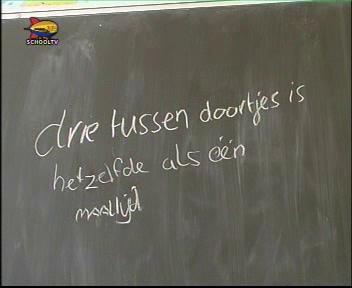 SCHOOLTV
drie tussen doortjes is
hetzelfde als één
maaltijd